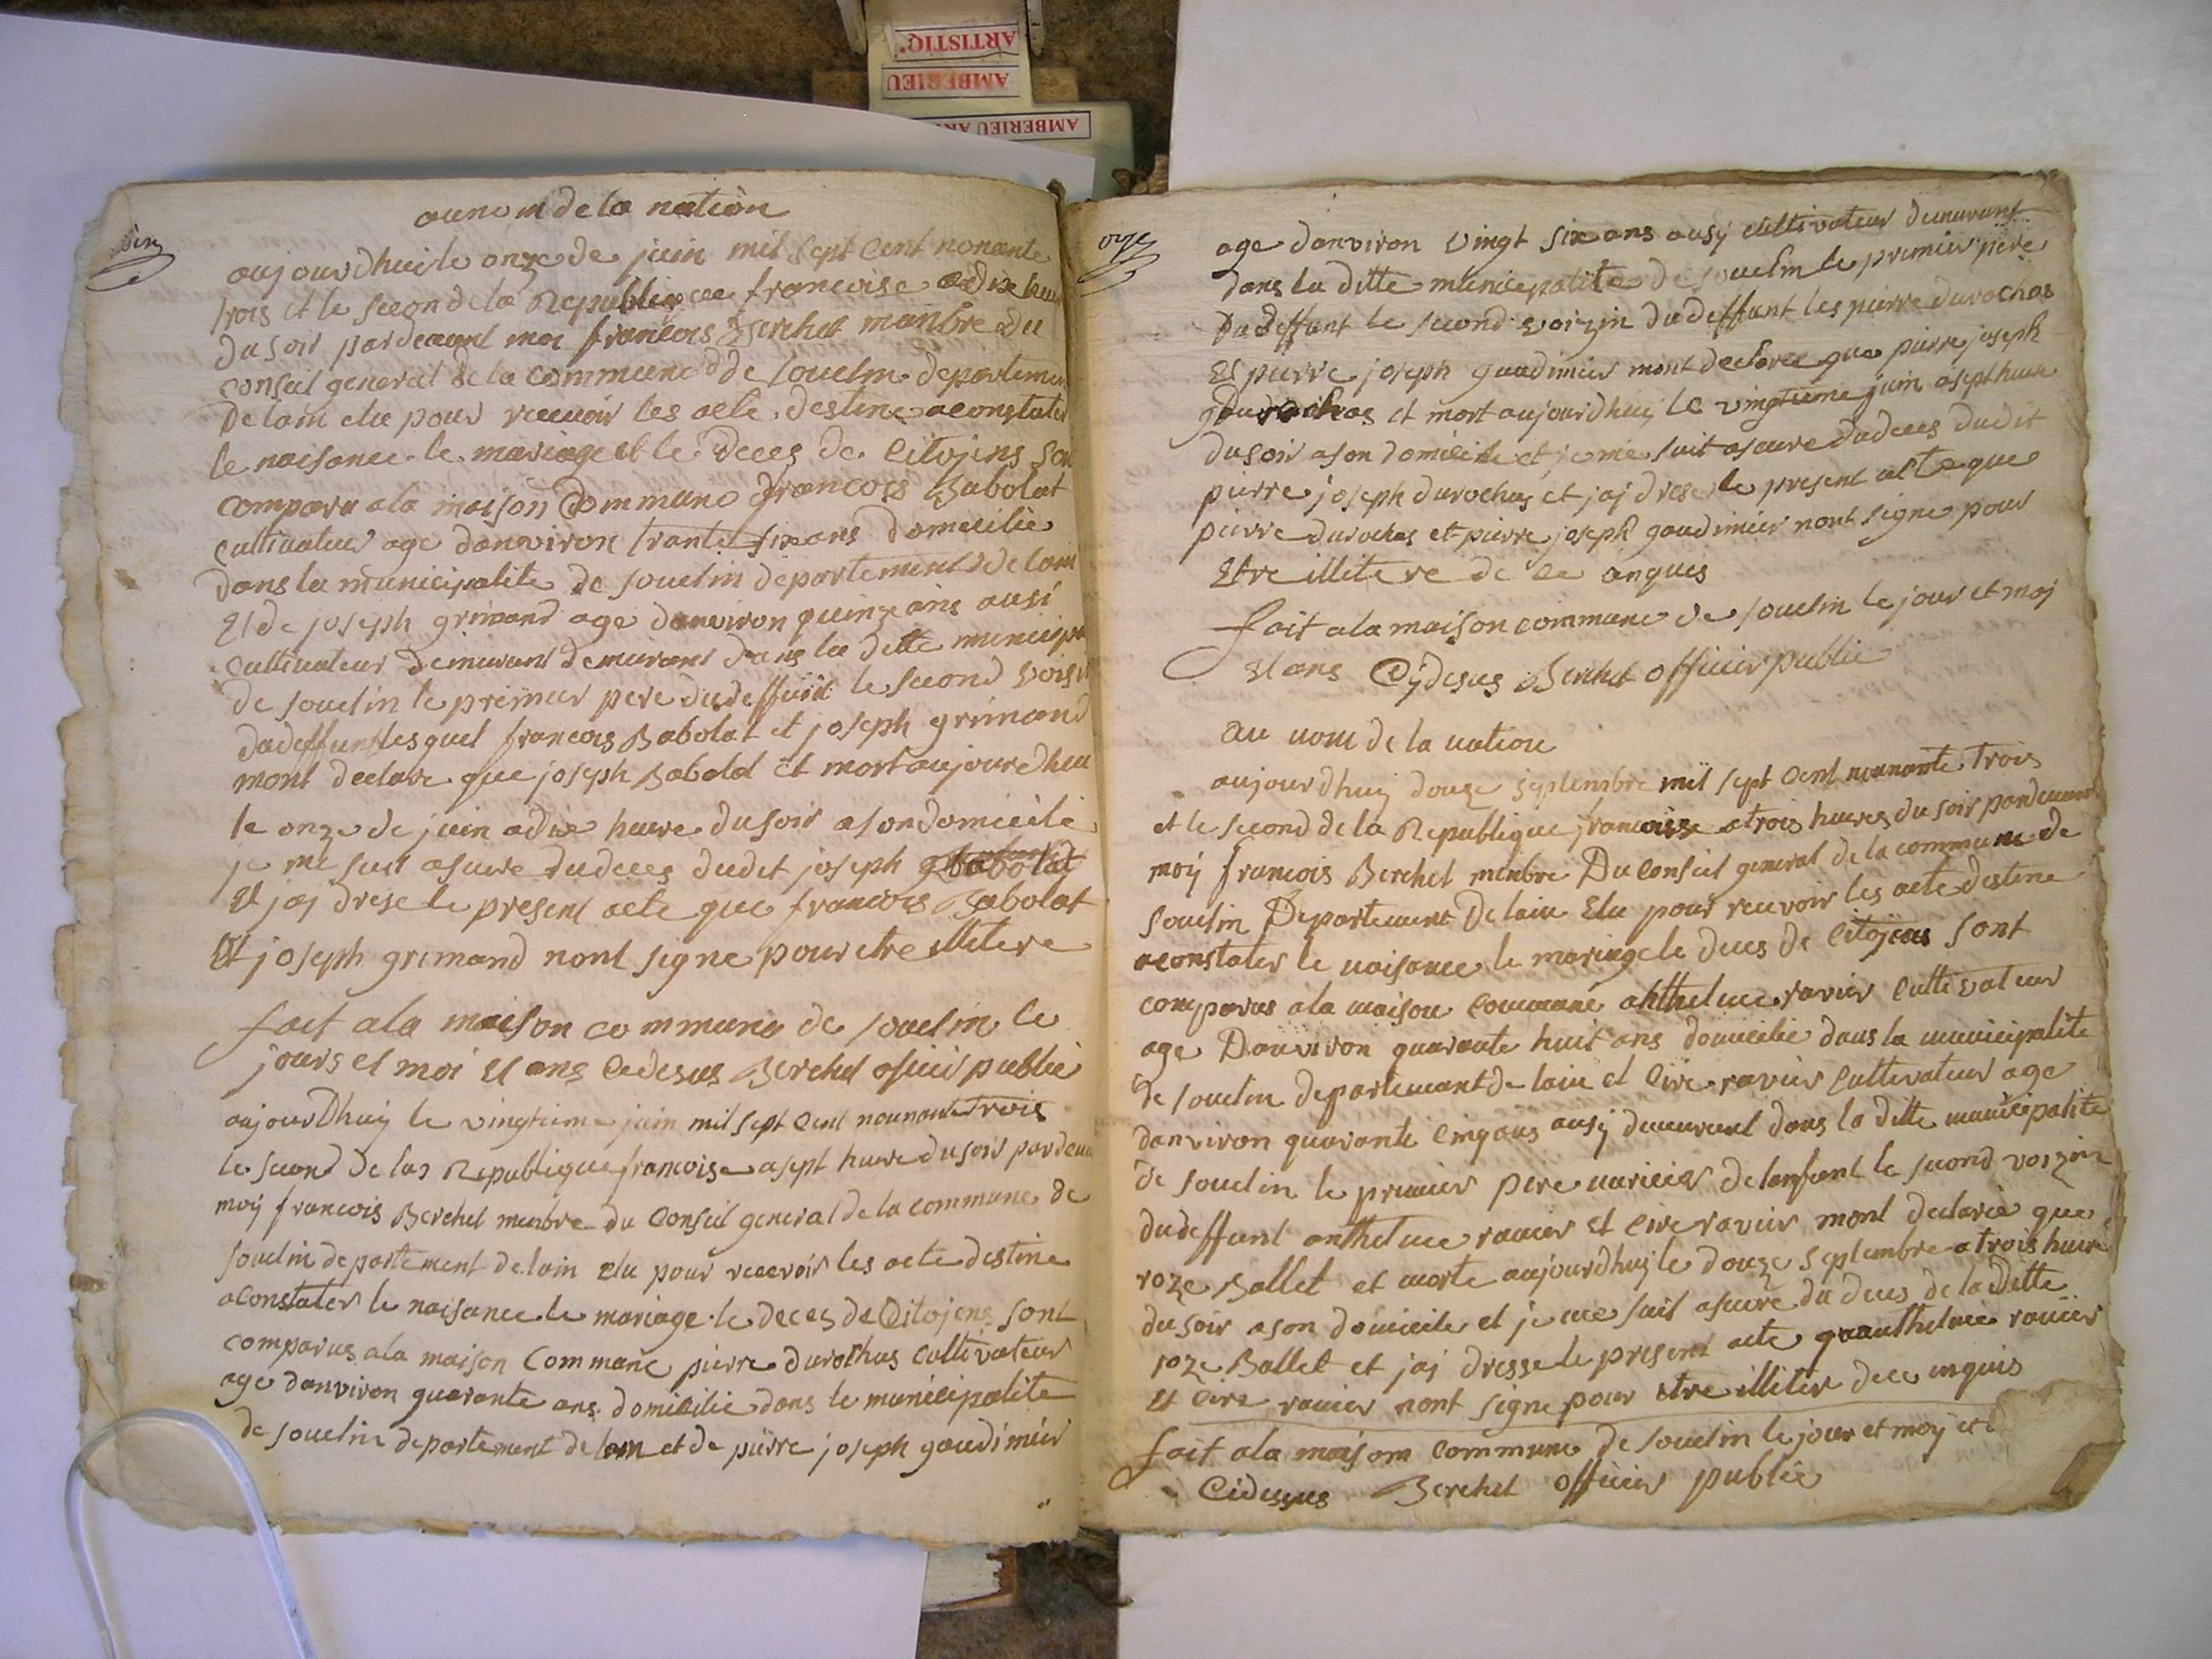 ARTISTIQ'
AMBERIEU
AMBERIEU AR
au nom de la nation
aujourdhui le onze de juin mil sept cent nonante
trois et le second de la Republicque francoise a dix heur
du soir pardevant moi francois Berchet manbre du
conseil general de la commune de souclin departemen
de lain elu pour recevoir les acte destine a constater
le naisance le mariage et le deces de citojens son
comparu a la maison commune francois Babolat
cultivateur age danviron trante six ans domicilie
dans la municipalite de souclin departement de lain
Et de joseph grimand age danviron quinze ans ausi
cultivateur demurant demurant dans la ditte municipa
de souclin le premier pere du deffunt le second voisin
du deffunt lesquel francois Babolat et joseph grimand
mont declare que joseph Babolat et mort aujourdhui
le onze de juin a dix heure du soir a son domicile
je me suit asure du deces dudit joseph Babolat
Et jaj drese le present acte que francois Babolat
Et joseph grimand nont signe pour etre illitere
fait a la maison commune de souclin le
jours et moi et ans cidesus Berchet oficier public
aujourdhuij le vingtieme juin mil sept cent nounante trois
le second de la Republique francoise a sept heure du soir pardeva
moij francois Berchet menbre du conseil general de la commune de
souclin departement de lain elu pour recevoir les acte destine
a constater le naisance le mariage le deces de Citojens sont
comparus a la maison Commune pierre durochas cultivateur
age danviron quarante ans domicilie dans le municipalite
de souclin departement de lain et de pierre joseph gaudimier
onze
age danviron vingt six ans ausij cultivateur demurant
dans la ditte municipalite de souclin le premier pere
du deffunt le second voizin du deffunt les pierre durochas
Et pierre joseph gaudimier mont declaree que pierre joseph
durochas et mort aujourdhuij le vingtieme juin a sept heure
du soir a son domicile et je me suit asuure du deces dudit
pierre joseph durochas et jaj drese le present acte que
pierre durochas et pierre joseph gaudimier nont signe pour
Etre illitere de ce anquis
fait a la maison commune de souclin le jour et moj
et ans Cydesus Berchet officier public
au nom de la nation
aujourdhuij douze septenbre mil sept cent nounante trois
et le second de la Republique francoisse a trois heures du soir pardevant
moij francois Berchet menbre Du conseil general de la commune de
souclin Departement de lain Elu pour recevoir les acte destine
a constater le naisance le mariage le deces de Citojens sont
comparus a la maison commune anthelme ravier cultivateur
age Danviron quarante huit ans domicilie dans la municipalite
de souclin departemant de lain et Cire ravier cultivateur age
danviron quarante cinq ans ausij demurant dans la ditte municipalite
de souclin le premier pere nuricier de lanfant le second voizin
du deffunt anthelme ravier et Cire ravier mont declarée que
roze Ballet et morte aujourdhuij le douze septenbre a trois heure
du soir a son domicile et je me suit aseuré du deces de la ditte
roze Ballet et jaj dresse le present acte qu anthelme ravier
et Cire ravier nont signe pour etre illiter de ce enquis
fait a la maison commune de souclin le jour et moij et
cidessus Berchet officier public